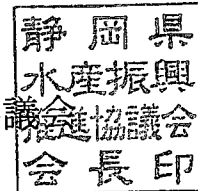 静岡県
水産振興
議会
推進協議会
会長印